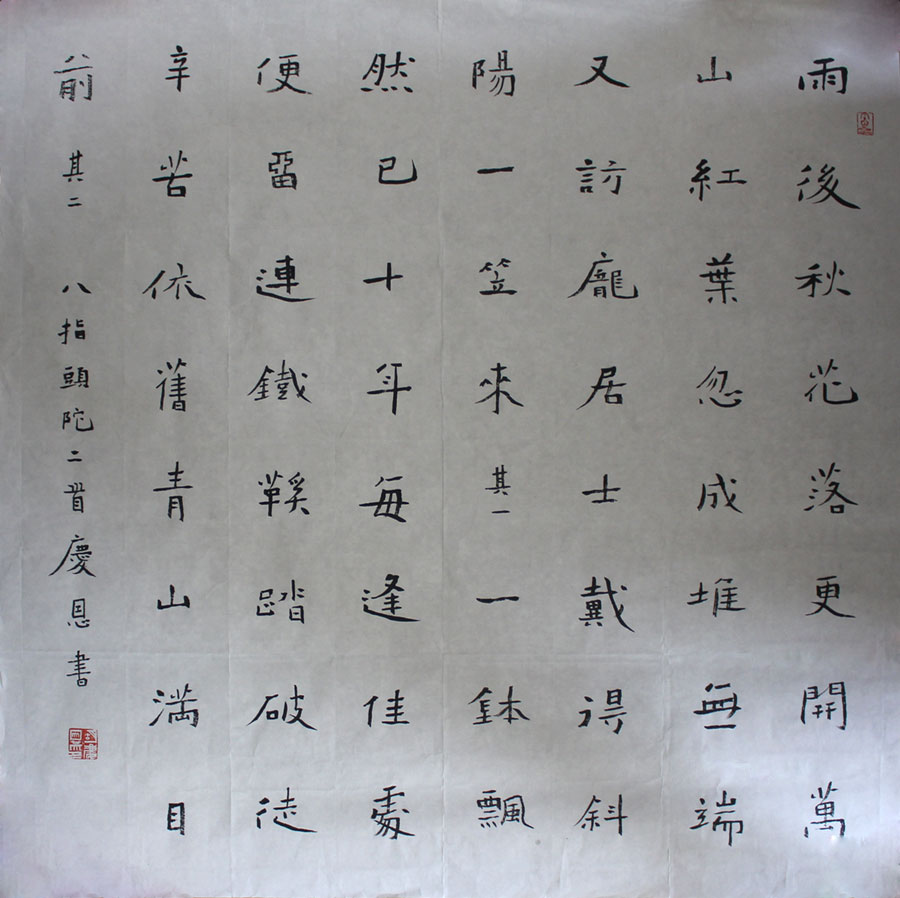 雨後秋花落更開萬
山紅葉忽成堆無端
又訪龐居士戴得斜
陽一笠來其一一鉢飄
然已十年每逢佳處
便畱連鐵鞵踏破徒
辛苦依舊青山滿目
前其二八指頭陀二首慶恩書